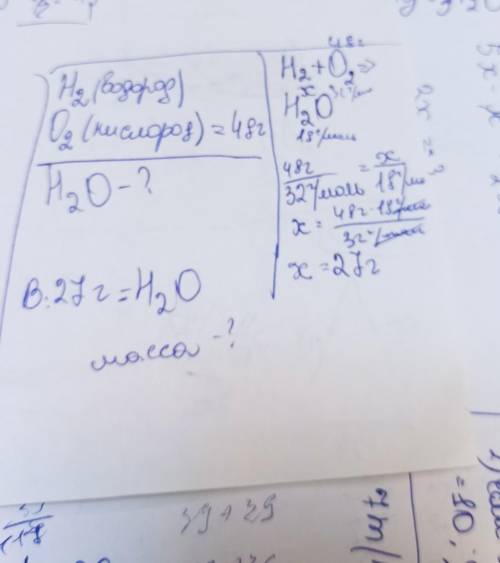 H₂ (водород)
O₂ (кислород) = 48г
H₂O - ?
В: 27г = H₂O
масса - ?
48г
H₂ + O₂ =>
x 32г/моль
H₂O
18г/моль
48г/32г/моль = x/18г/мо
x = 48г · 18г/моль / 32г/моль
x = 27г
2x = ?
5x -
39 + 29
= 80